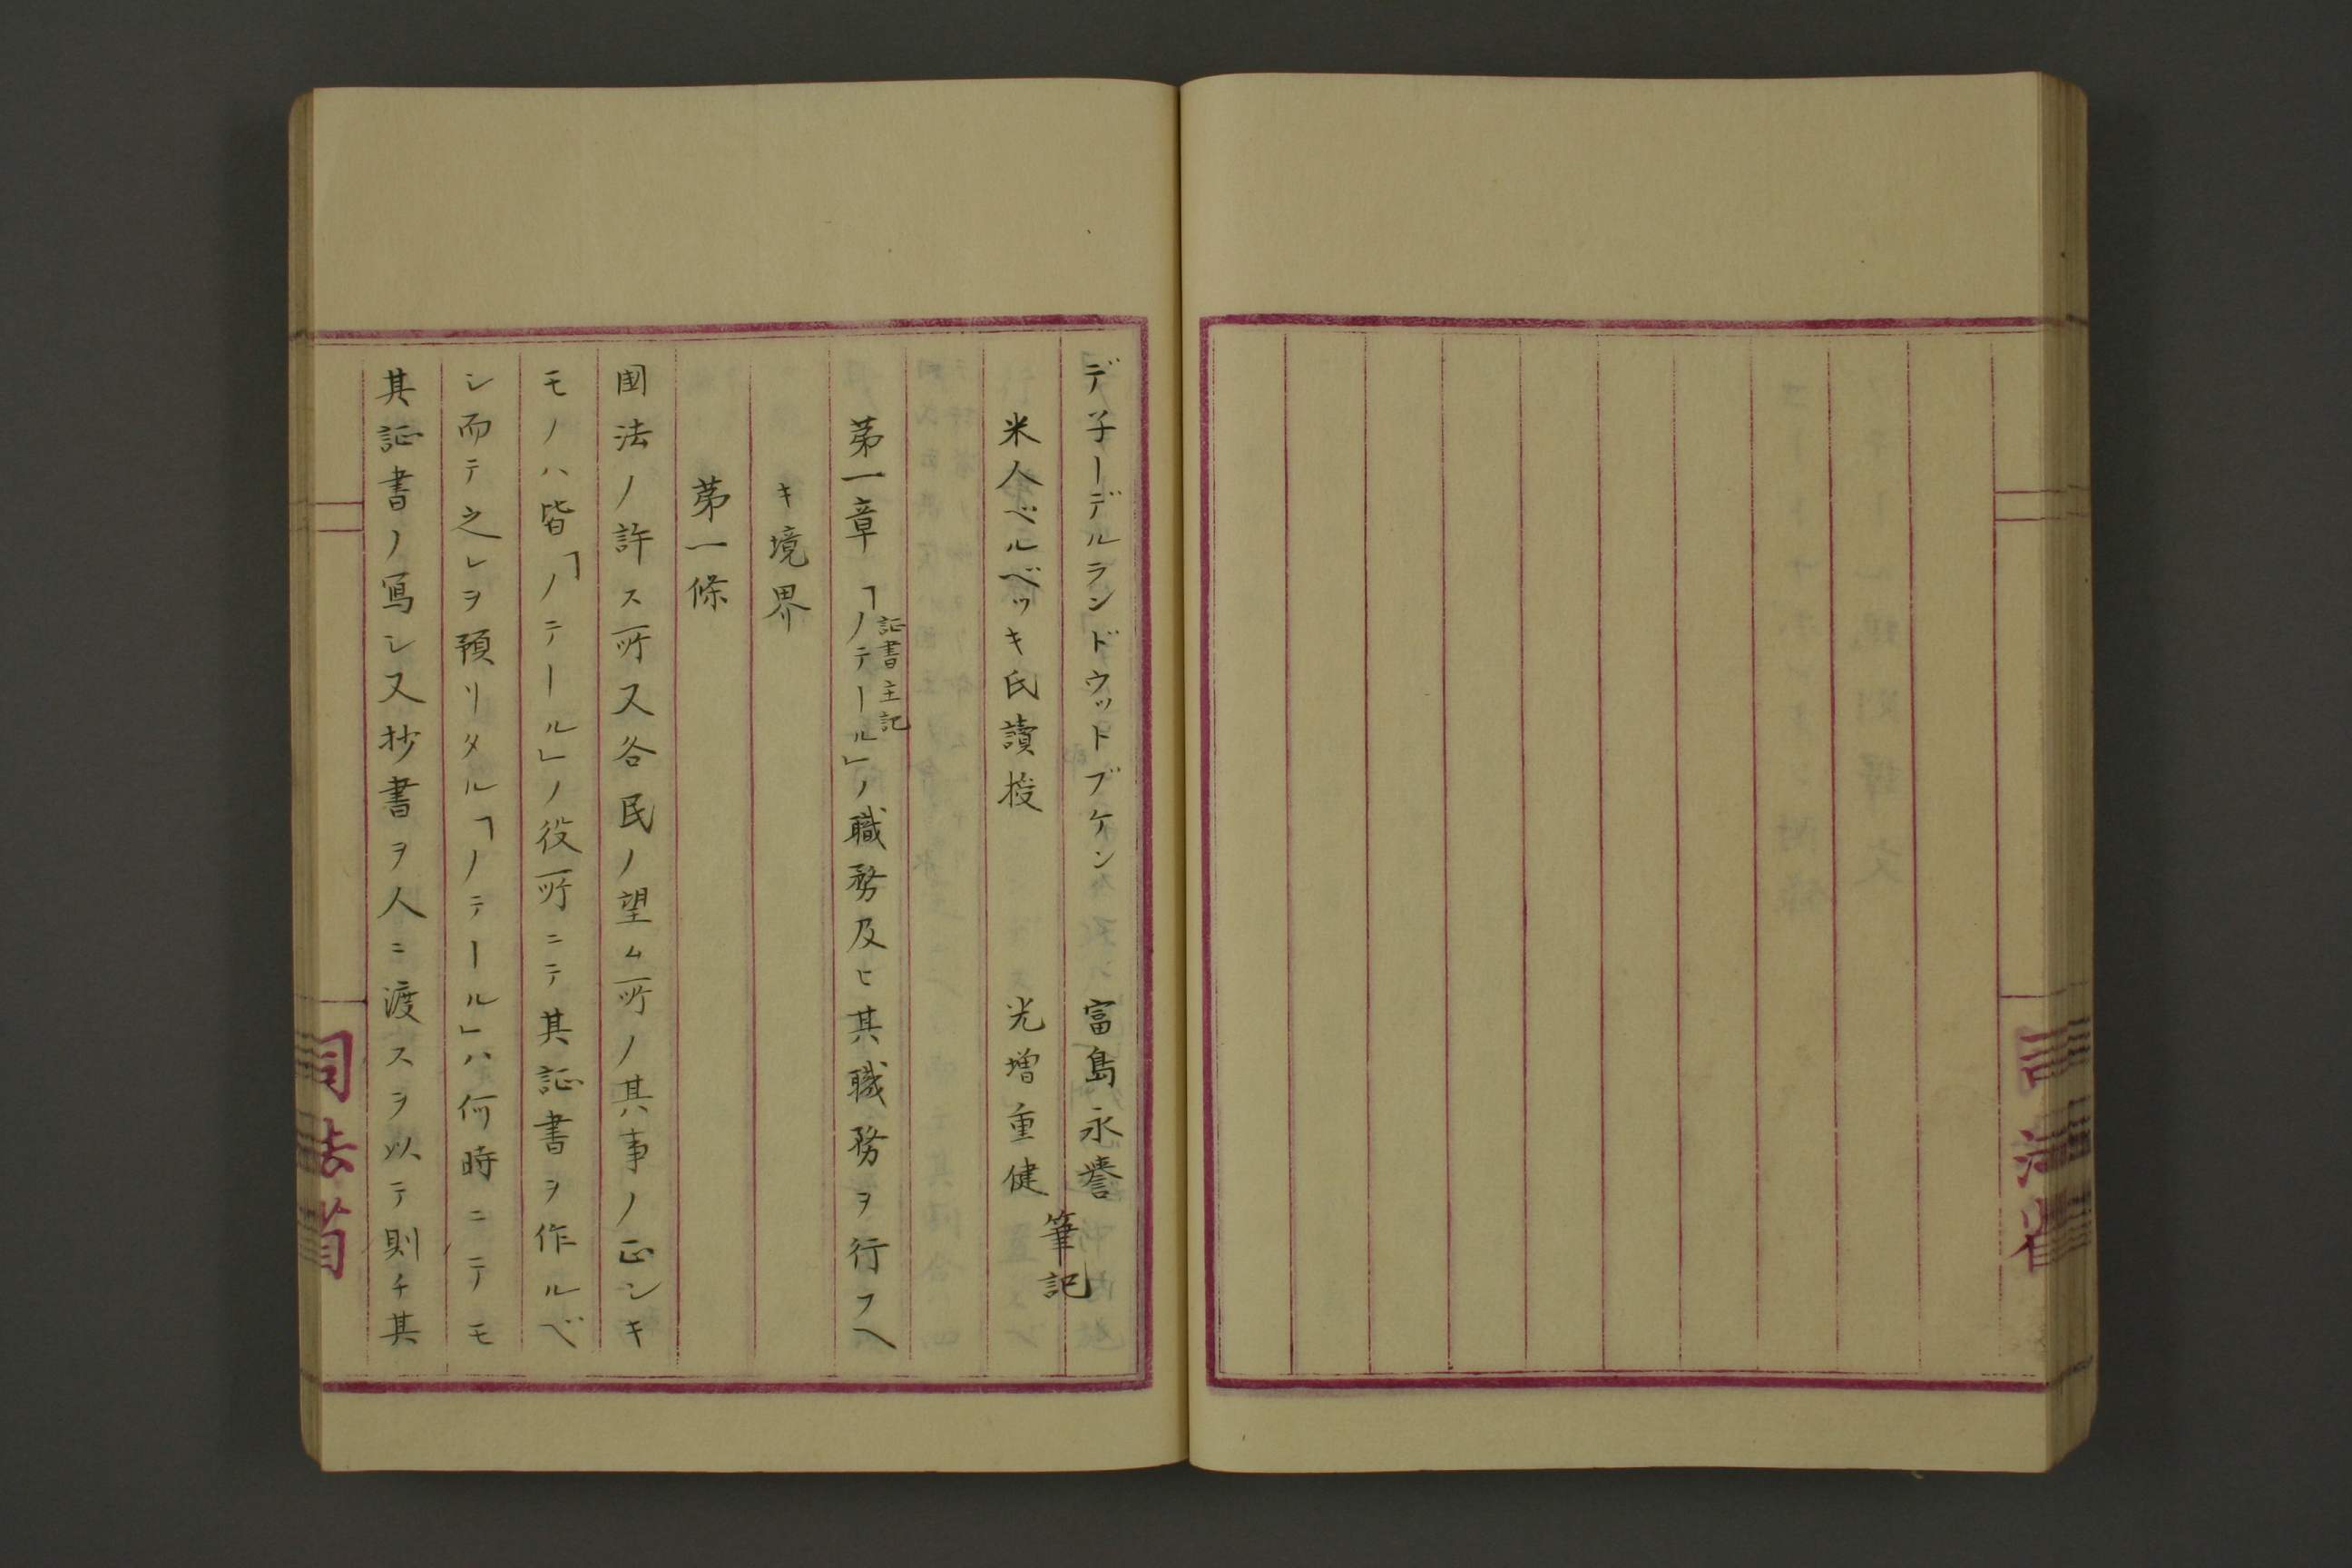 デ子ーデルランドウットブケン　富島永譽
米人ベルベッキ氏讀授　光增重健
筆記
第一章　「ノテール」ノ職務及ヒ其職務ヲ行フヘ
証書主記
キ境界
第一條
国法ノ許ス所又各民ノ望ム所ノ其事ノ正シキ
モノハ皆「ノテール」ノ役所ニテ其証書ヲ作ルベ
シ而テ之レヲ預リタル「ノテール」ハ何時ニテモ
其証書ノ寫シ又抄書ヲ人ニ渡スヲ以テ則チ其
司法省
司法省